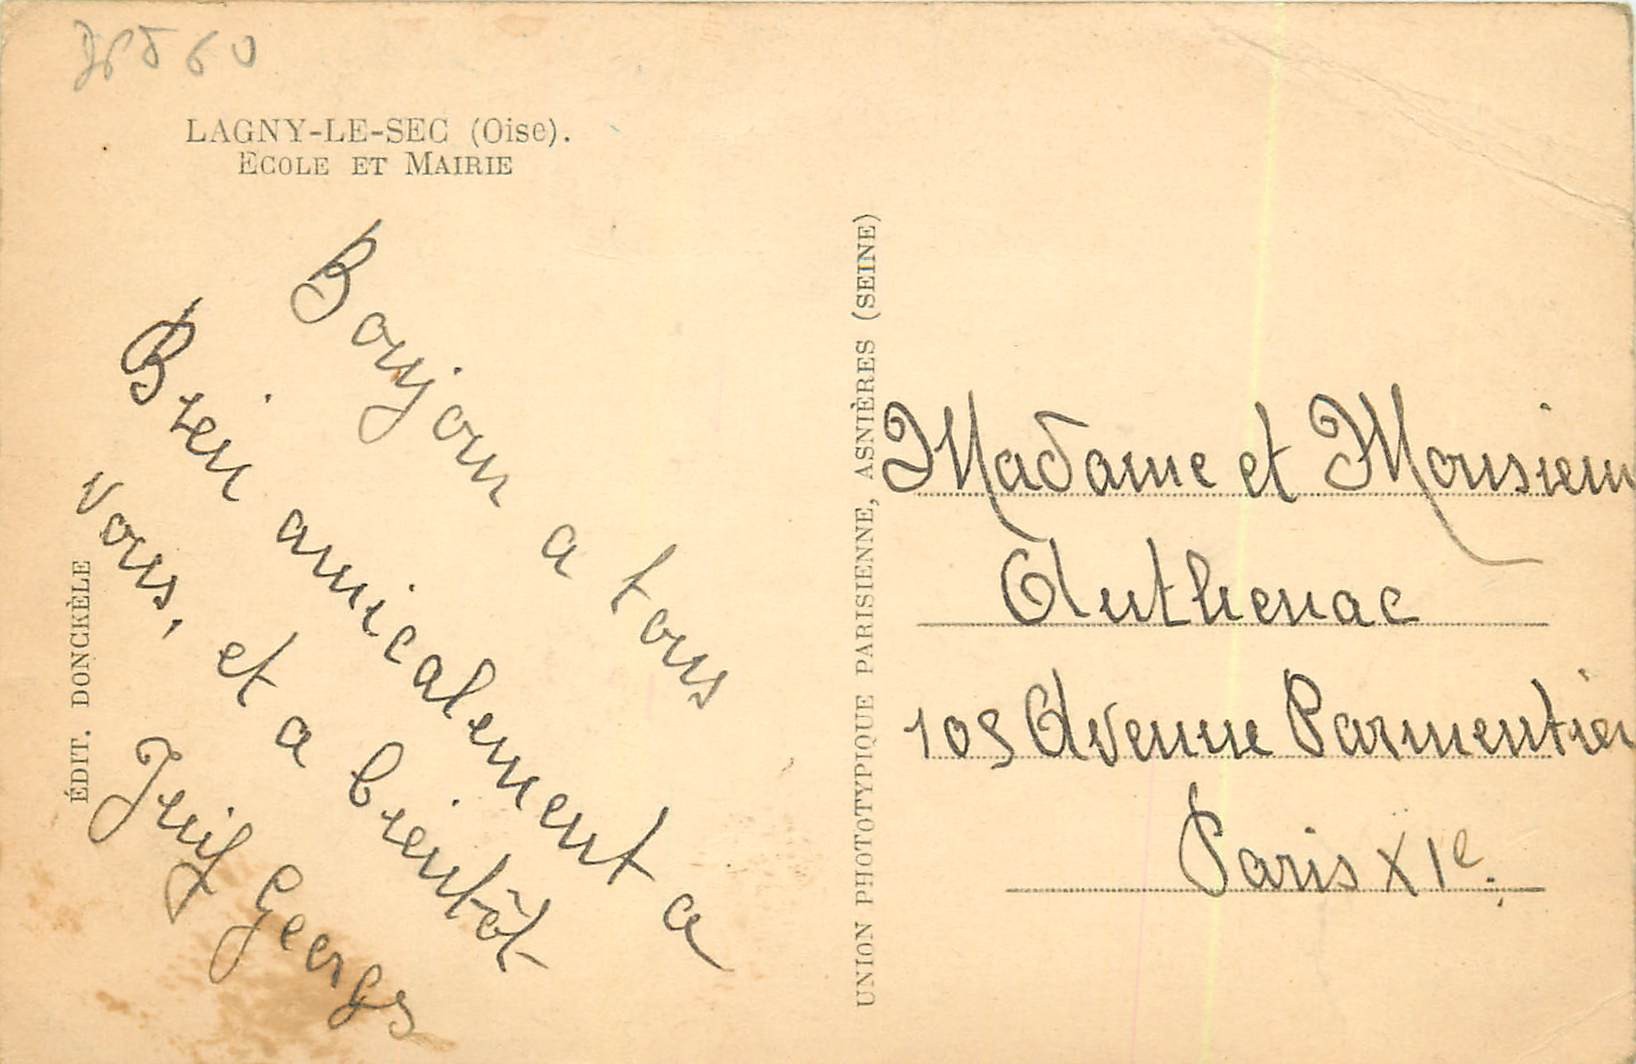 60
LAGNY-LE-SEC (Oise).
ECOLE ET MAIRIE
Boujour a tous
Bien amicalement a
vous, et a bientôt
Juif Georges
ÉDIT. DONCKÈLE
UNION PHOTOTYPIQUE PARISIENNE, ASNIÈRES (SEINE)
Madame et Monsieur
Authenac
105 Avenue Parmentier
Paris XIe.